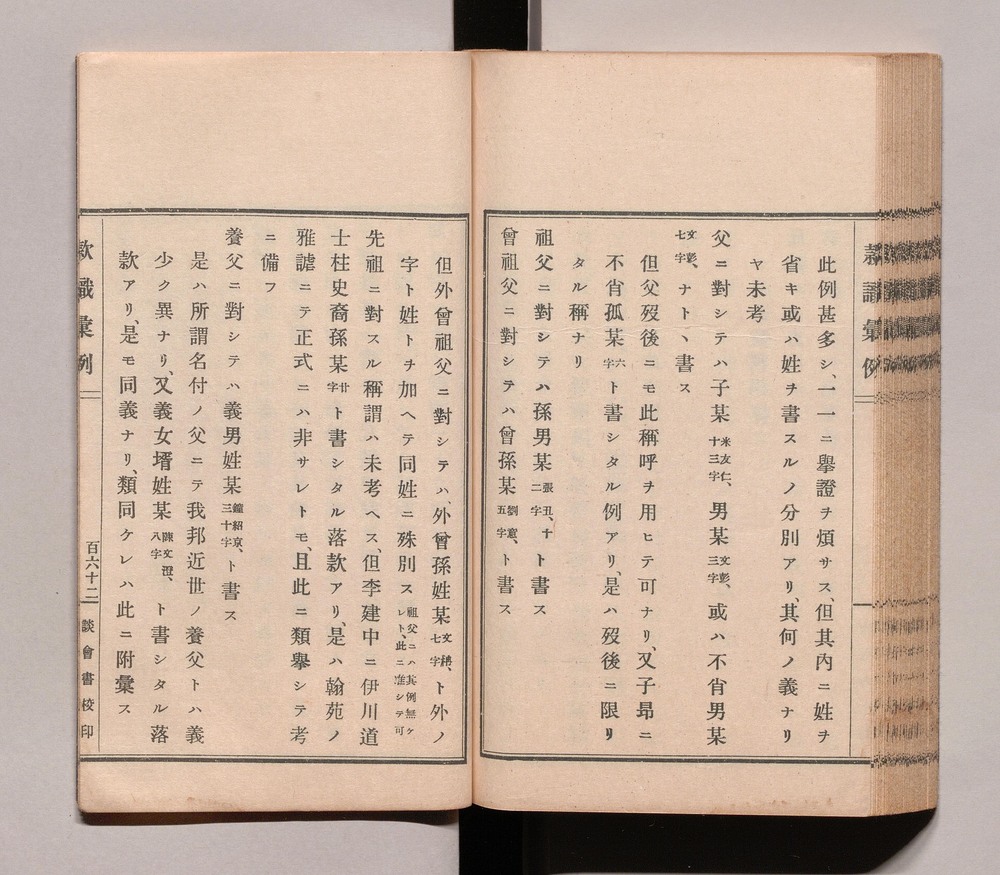 此例甚多シ、一一ニ擧證ヲ煩サス、但其內ニ姓ヲ
省キ或ハ姓ヲ書スルノ分別アリ、其何ノ義ナリ
ヤ未考
父ニ對シテハ子某 米友仁、十三字 男某 文彭、三字 或ハ不肖男某
文彭、七字 ナト丶書ス
但父歿後ニモ此稱呼ヲ用ヒテ可ナリ、又子昻ニ
不肖孤某 六字 ト書シタル例アリ、是ハ歿後ニ限リ
タル稱ナリ
祖父ニ對シテハ孫男某 張丑、十二字 ト書ス
曾祖父ニ對シテハ曾孫某 五字 ト書ス
但外曾祖父ニ對シテハ、外曾孫姓某 七字 ト外ノ
字ト姓トヲ加ヘテ同姓ニ殊別ス 祖父ニハ其例無ケレト、此ニ准シテ可
先祖ニ對スル稱謂ハ未考ヘス、但李建中ニ伊川道
士柱史裔孫某 廿字 ト書シタル落款アリ、是ハ翰苑ノ
雅謔ニテ正式ニハ非サレトモ、且此ニ類擧シテ考
ニ備フ
養父ニ對シテハ義男姓某 鐘紹京、三十字 ト書ス
是ハ所謂名付ノ父ニテ我邦近世ノ養父トハ義
少ク異ナリ、又義女壻姓某 八字 ト書シタル落
款アリ、是モ同義ナリ、類同ケレハ此ニ附彙ス
款識彙例
百六十二
談會書校印